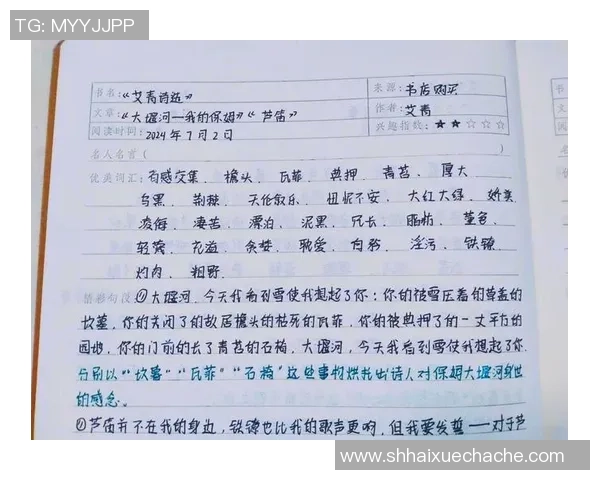 TG: MYYJJPP
书名:《艾青诗选》 来源: 书店购买
文章:《大堰河—我的保姆》《芦笛》 作者: 艾青
阅读时间: 2024年7月2日 兴趣指数: ★★☆☆☆
名人名言(
优美词汇: 百感交集、檐头、瓦菲、典押、青苔、厚大
乌黑、荆棘、天伦叙乐、忸怩不安、大红大绿、娇美
凌侮、凄苦、漂泊、泥黑、兄长、脂肪、堇色
轻蔑、亢溢、余婪、耻辱、淫污、铁镣
灼肉、粗野
精彩句段: ①大堰河,今天我看到雪使我想起了你:你的被雪压着的草盖的
坟墓,你的关闭了的故居檐头的枯死的瓦菲,你的被典押了的一丈平方的
园地,你的门前的长了青苔的石椅,大堰河,今天我看到雪使我想起了你.
分别以“坟墓”“瓦菲”“石椅”这些事物烘托出诗人对保姆大堰河身世
的感念。
②芦笛并不在我的身边,铁镣也比我的歌声更响,但我要发誓——对于芦
www.shhaixuechache.com